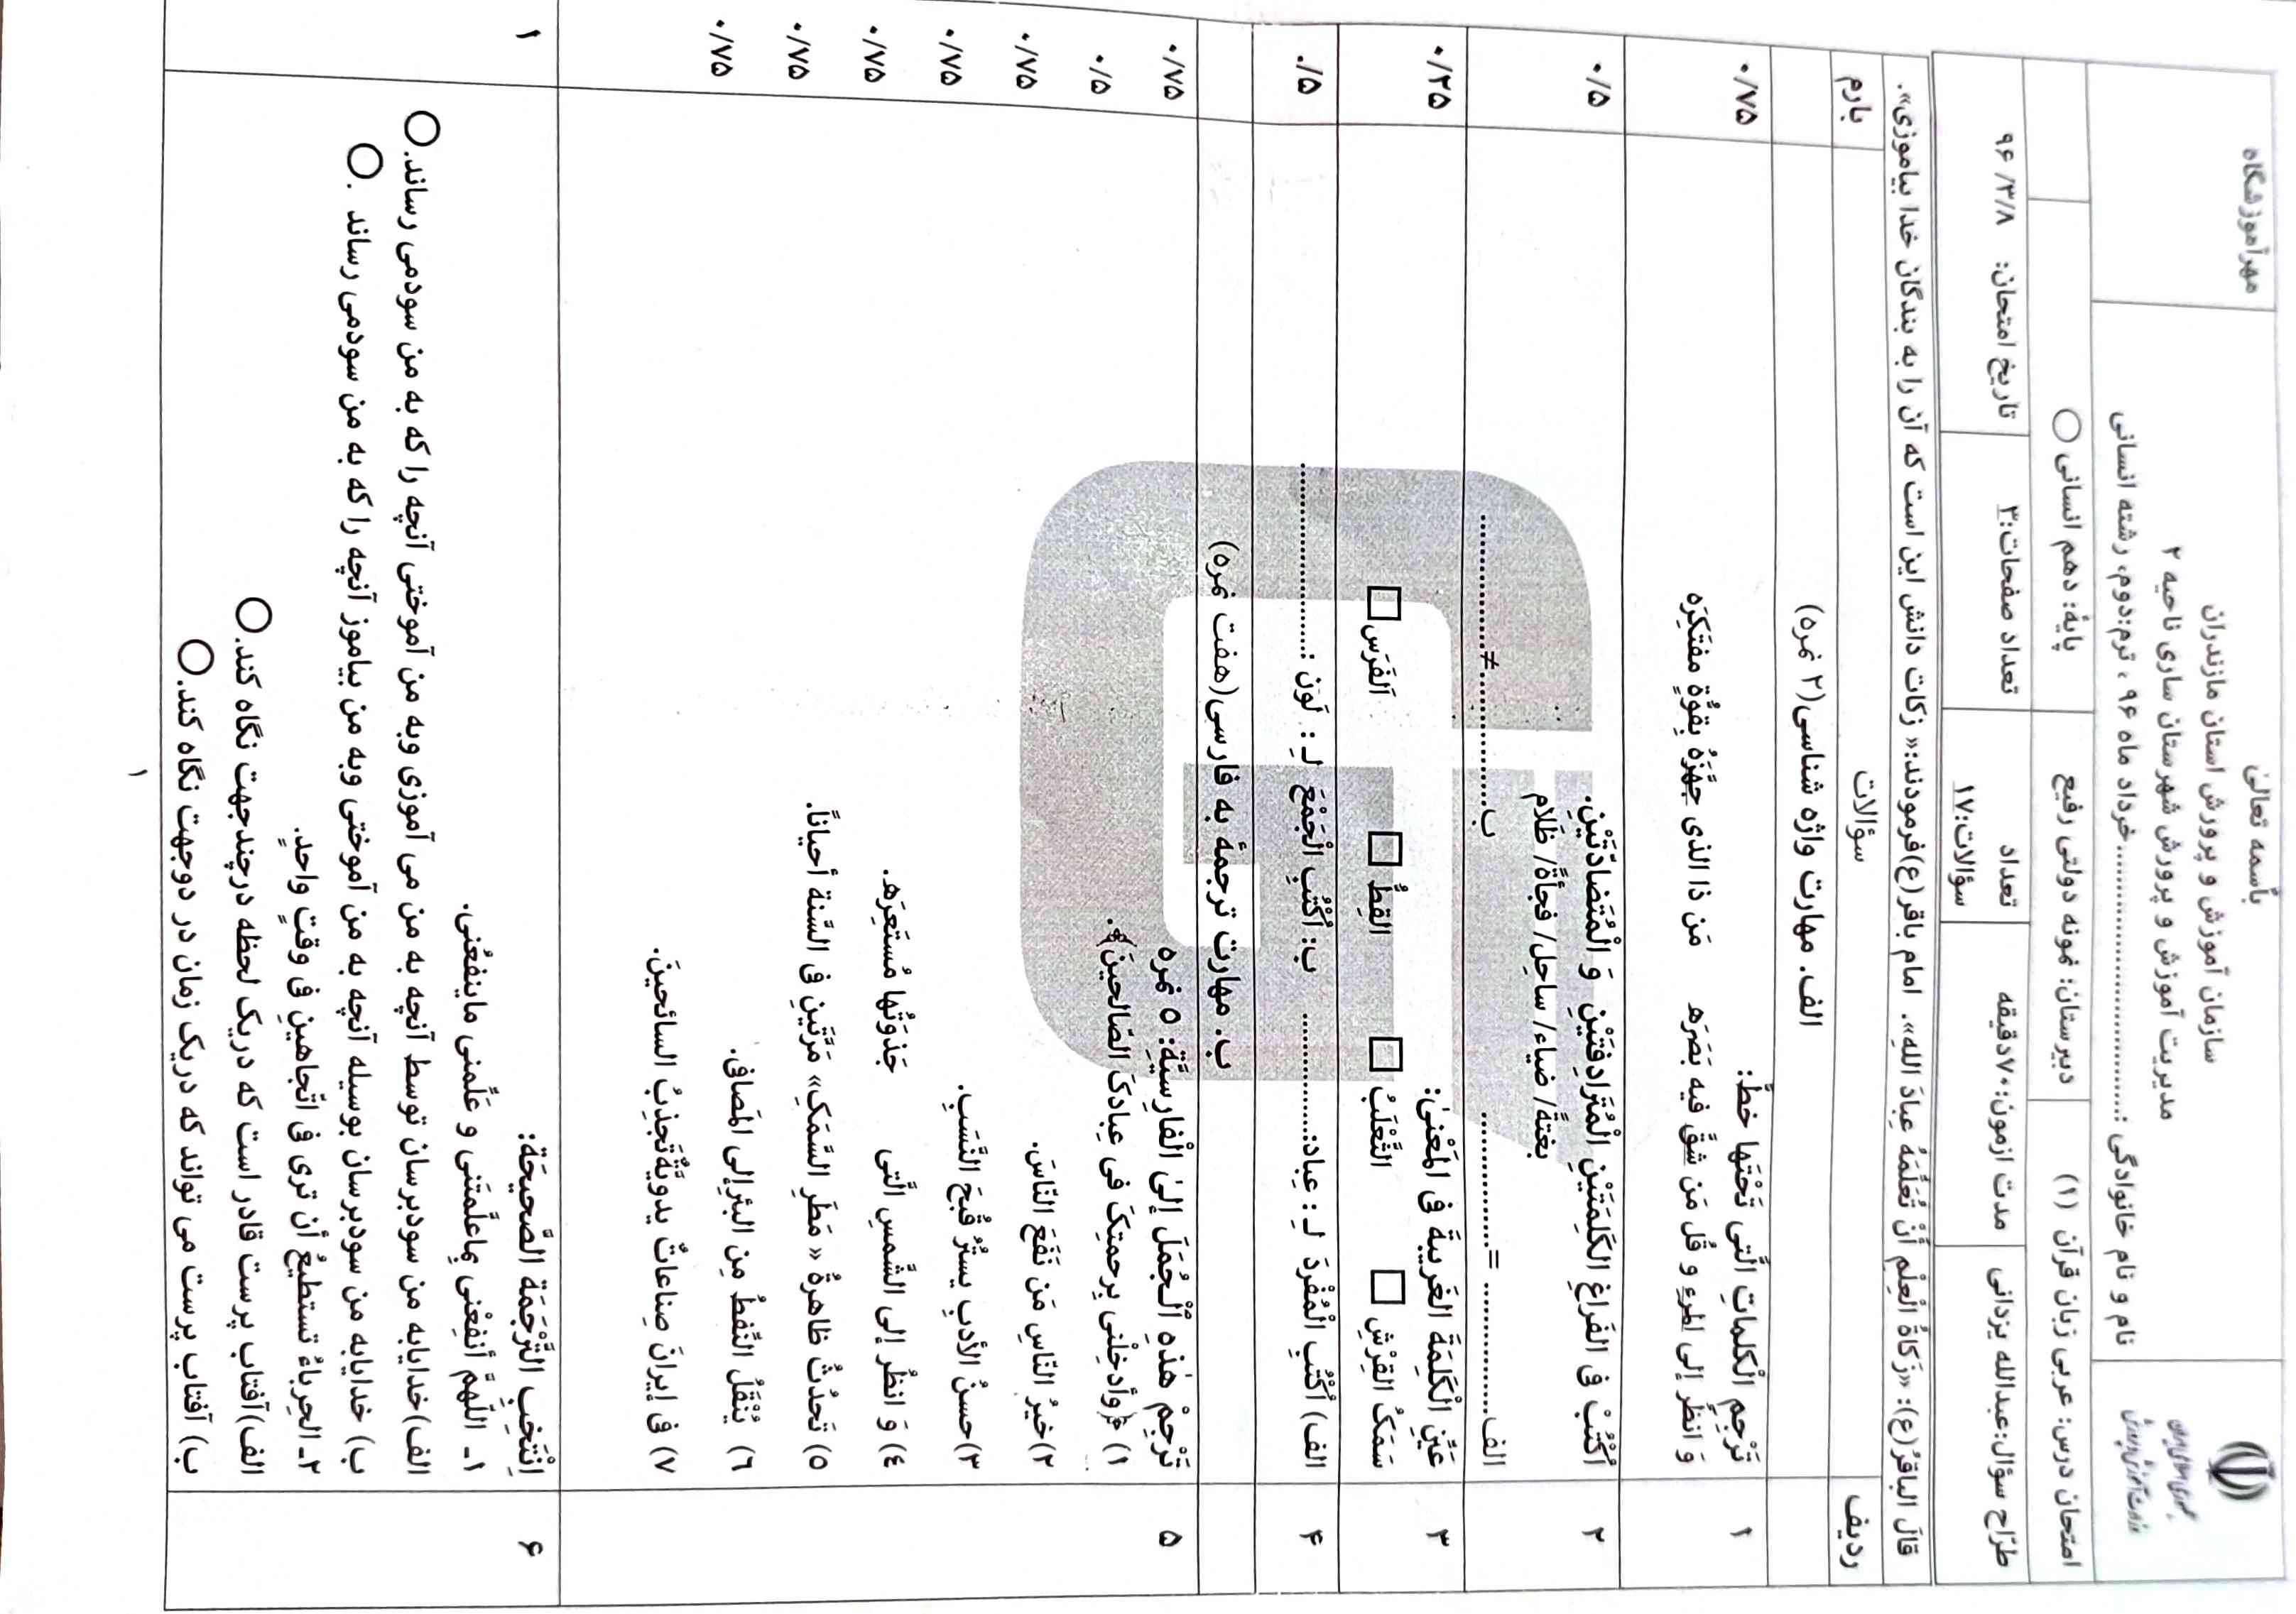 باسمه تعالی
سازمان آموزش و پرورش استان مازندران
مدیریت آموزش و پرورش شهرستان ساری ناحیه ۲
مهرآموزشگاه
نام و نام خانوادگی :..............................خرداد ماه ۹۶ ، ترم:دوم، رشته انسانی
امتحان درس: عربی زبان قرآن (۱) دبیرستان: نمونه دولتی رفیع پایۀ: دهم انسانی ○
طرّاح سؤال:عبدالله یزدانی مدت ازمون:۷۰دقیقه تعداد سؤالات:۱۷ تعداد صفحات:۳ تاریخ امتحان: ۹۶/۳/۸
قالَ الباقرُ(ع): «زَكاةُ الْعِلْمِ أَنْ تُعَلِّمَهُ عِبادَ اللهِ». امام باقر(ع)فرمودند:« زکات دانش این است که آن را به بندگان خدا بیاموزی».
ردیف سؤالات بارم
الف. مهارت واژه شناسی(۲ نمره)
۱ تَرْجِمِ الْکلماتِ الَّتی تَحْتَها خطٌّ: ۰/۷۵
وَ انظر إلی المرءِ و قُل مَن شقَّ فیه بَصَرَه مَن ذا الذی جهَّزَهُ بِقوَّةٍ مفتَکِرَه
۲ اُکْتُبْ فی الفَراغِ الکَلِمَتَیْنِ الْمُتَرادِفَتَیْنِ وَ الْمُتَضادَّتَیْنِ. ۰/۵
بغتةً/ ضیاء/ ساحل/ فجأةً/ ظَلام
الف.................= ................. ب.................≠.................
۳ عَیِّنِ الْکَلِمَةَ الغَریبةَ فی المَعْنیٰ: ۰/۲۵
سَمَکُ القِرْشِ □ الثَّعْلَبُ □ القِطُّ □ اَلفَرَس □
۴ الف) اُکْتُبِ الْمُفْرَدَ لِـ : عِباد:................. ب: اُکْتُبِ الْجَمْعَ لِـ : لَون :................. ۰/۵
ب. مهارت ترجمۀ به فارسی(هفت نمره)
۵ تَرْجِمْ هٰذِهِ الْجُمَلَ إلیٰ الْفارِسیَّةِ: ۵ نمره
۱) ﴿وأدخِلْنی بِرحمتِکَ فی عِبادکَ الصّالحینَ﴾. ۰/۷۵
۲)خیرُ النّاسِ مَن نَفَعَ النّاسَ. ۰/۵
۳)حسنُ الأدبِ یستُرُ قُبحَ النَّسَبِ. ۰/۷۵
٤) وَ انظُر إلی الشَّمسِ الَّتی جَذوَتُها مُستَعِرَه. ۰/۷۵
٥) تَحدُثُ ظاهرةُ « مَطَرِ السَّمَکِ» مَرَّتَینِ فی السَّنة أحیاناً. ۰/۷۵
٦) یُنْقَلُ النَّفطُ مِن البئرِإلی المَصافی. ۰/۷۵
۷) فی إیرانَ صِناعاتٌ یدویَّةٌتَجذِبُ السائحینَ. ۰/۷۵
۶ اِنْتَخِبِ التَّرْجَمَة الصَّحیحَة: ۱
۱ـ اللّهمَّ أنفِعْنی بِماعلَّمتَنی و عَلِّمنی ماینفعُنی.
الف)خدایابه من سودبرسان توسط آنچه به من می آموزی وبه من آموختی آنچه را که به من سودمی رساند.○
ب) خدایابه من سودبرسان بوسیله آنچه به من آموختی وبه من بیاموز آنچه را که به من سودمی رساند .○
۲ـ الحِرباءُ تستطیعُ أن تری فی اتّجاهینِ فی وقتٍ واحدٍ.
الف)آفتاب پرست قادر است که دریک لحظه درچندجهت نگاه کند.○
ب) آفتاب پرست می تواند که دریک زمان در دوجهت نگاه کند.○
۱